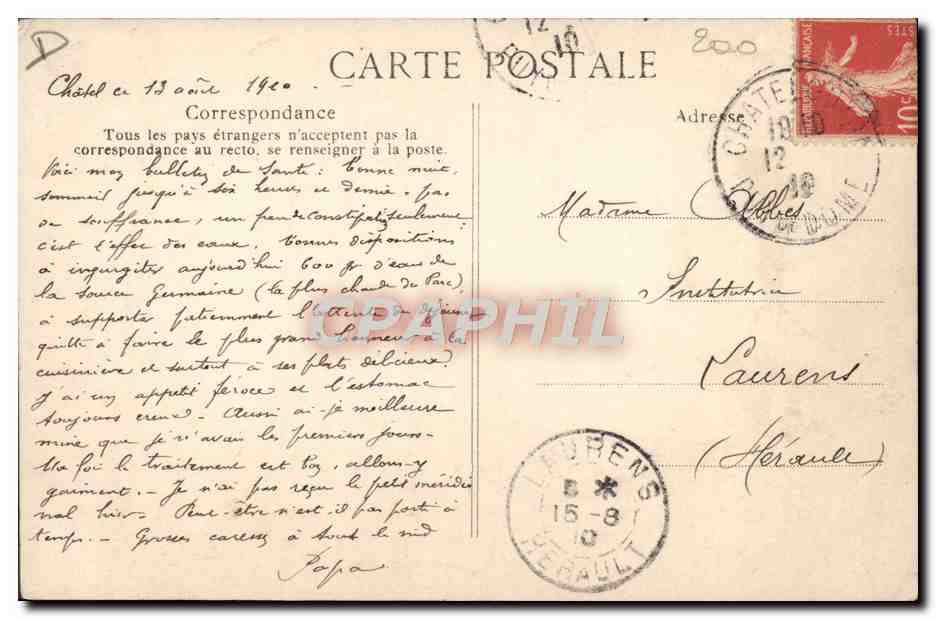 D
200
CARTE POSTALE
Châtel ce 13 août 1910.
Correspondance
Tous les pays étrangers n'acceptent pas la
correspondance au recto, se renseigner à la poste.
Voici mon bulletin de Santé : bonne nuit,
sommeil jusqu'à six heures et demie - pas
de souffrance, un peu de constipation seulement
c'est l'effet des eaux. bonnes dispositions
à ingurgiter aujourd'hui 600 gr d'eau de
la source Germaine (la plus chaude du Parc)
à supporter patiemment l'attente du déjeuner
quitte à faire le plus grand honneur à la
cuisinière et surtout à ses plats délicieux.
J'ai un appétit féroce et l'estomac
toujours creux - Aussi ai-je meilleure
mine que je n'avais les premiers jours -
Ma foi le traitement est bon, allons-y
gaiment. - Je n'ai pas reçu le petit méridio
nal hier - Peut-être n'est-il pas parti à
temps. - Grosses caresses à tout le nid
Papa
Adresse
Madame Abbes
Institutrice
Laurens
(Hérault)
RÉPUBLIQUE FRANÇAISE
POSTES
10c
CHATEL
12
10
PUY DE DOME
12
10
LAURENS
5 *
15-8
10
HERAULT
CPAPHIL